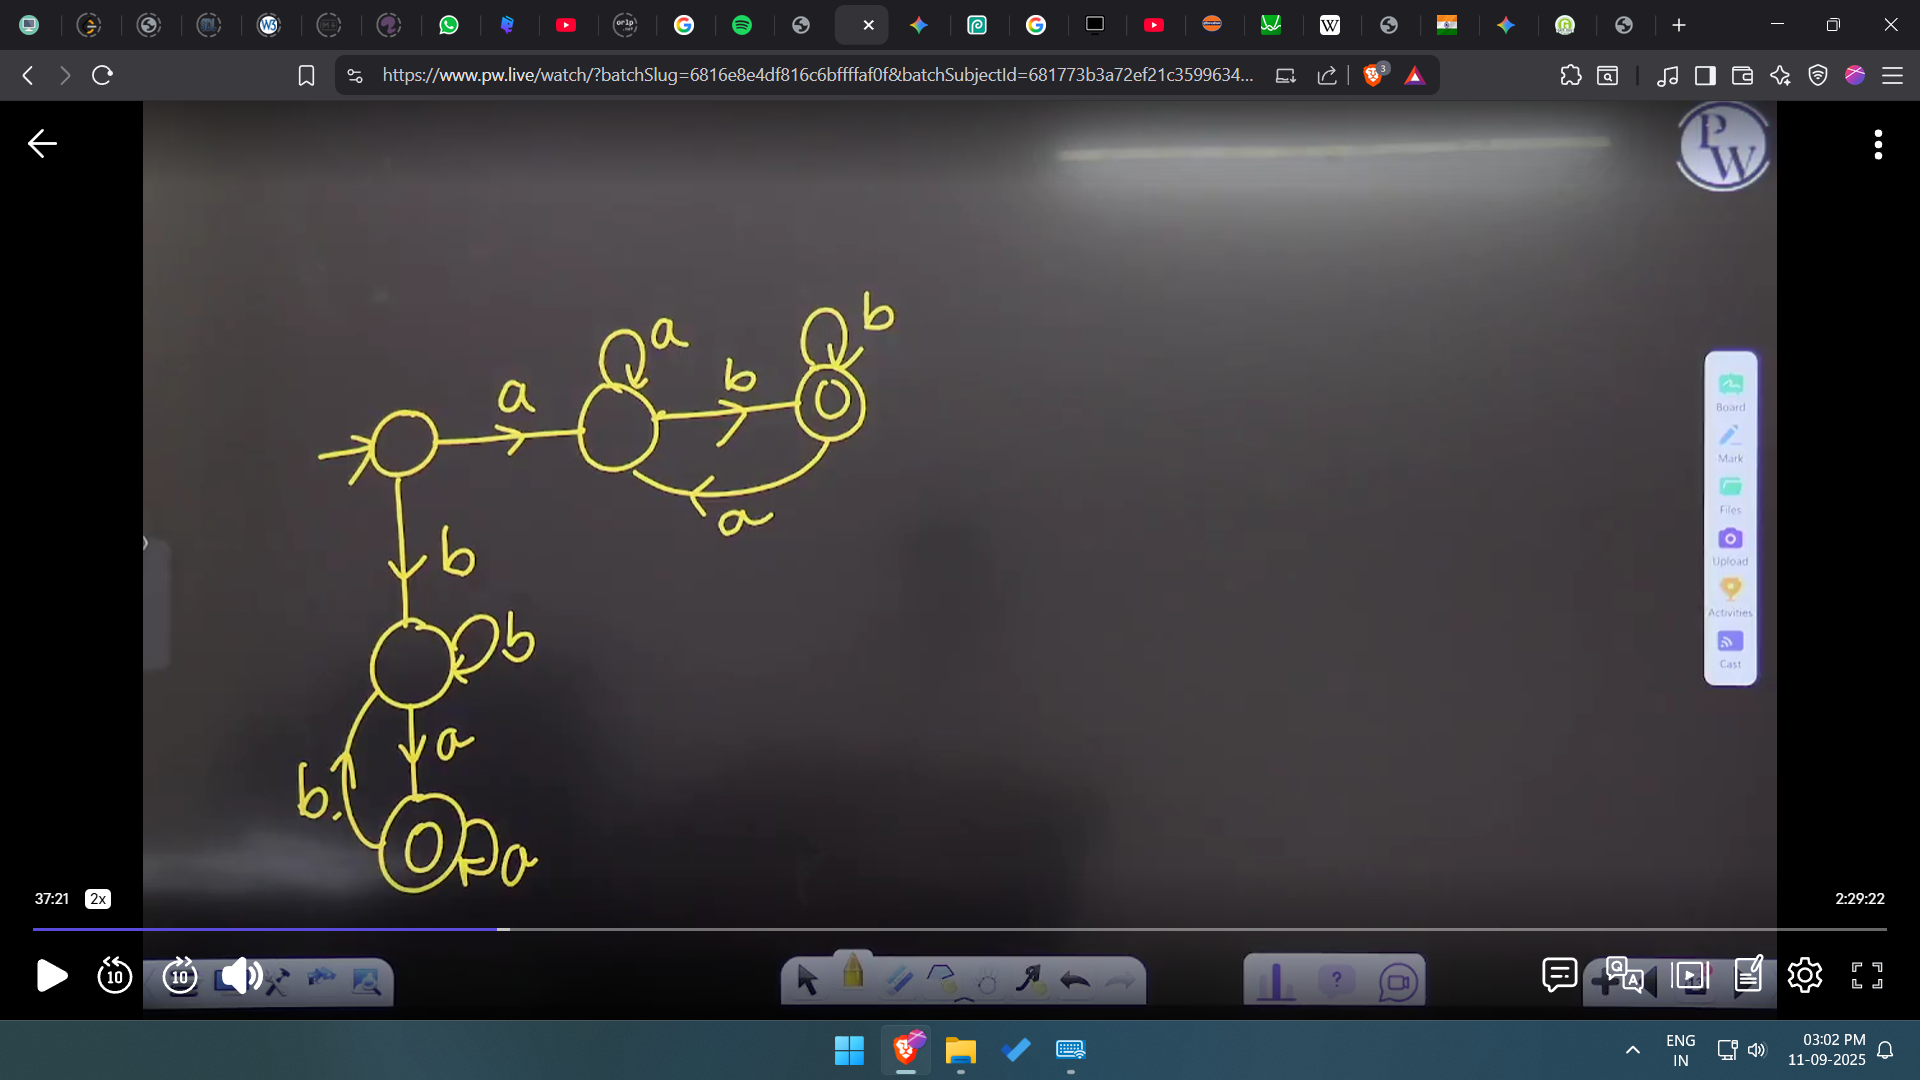 https://www.pw.live/watch/?batchSlug=6816e8e4df816c6bffffaf0f&batchSubjectId=681773b3a72ef21c3599634...
3
PW
b
a
b
a
a
b
b
a
b
a
Board
Mark
Files
Upload
Activities
Cast
37:21 2x
2:29:22
10 10
ENG
IN
03:02 PM
11-09-2025